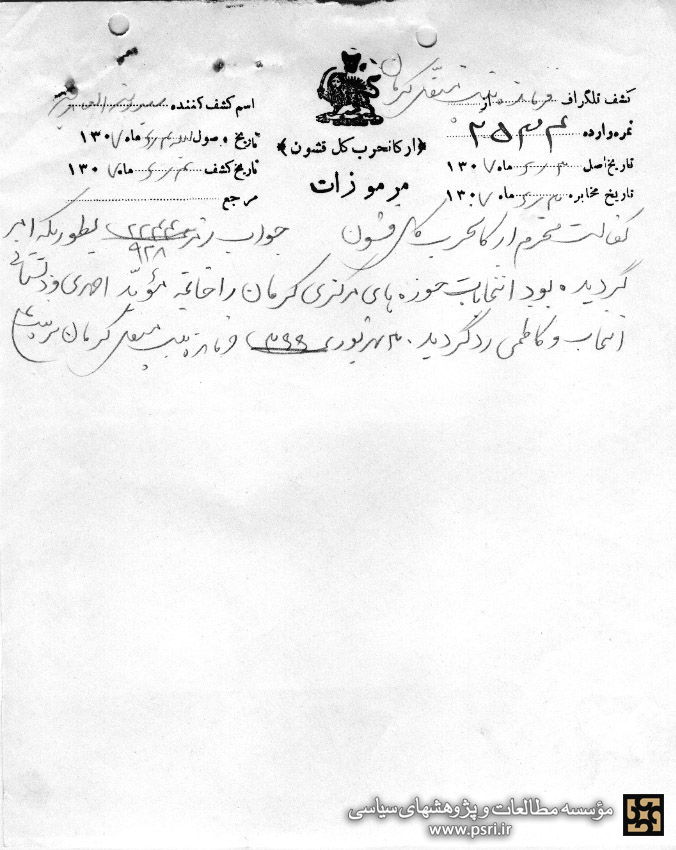 کشف تلگراف از فرمانده تیپ مستقل کرمان
نمره وارده ۲۵۳۴
تاریخ اصل ماه ۱۳۰۷
تاریخ مخابره ماه ۱۳۰۷
﴿ارکانحرب کل قشون﴾
مرموزات
اسم کشف کننده
تاریخ وصول ماه ۱۳۰۷
تاریخ کشف ماه ۱۳۰۷
مرجع
کفالت محترم ارکانحرب کل قشون جواب نمره ۲۲۴۴ بطوریکه امر
۹۲۸
گردیده بود انتخابات حوزه های مرکزی کرمان را خاتمه مؤید احمدی و
انتخاب و کاظمی رد گردید. شهریور فرمانده تیپ مستقل کرمان
مؤسسه مطالعات و پژوهشهای سیاسی
www.psri.ir